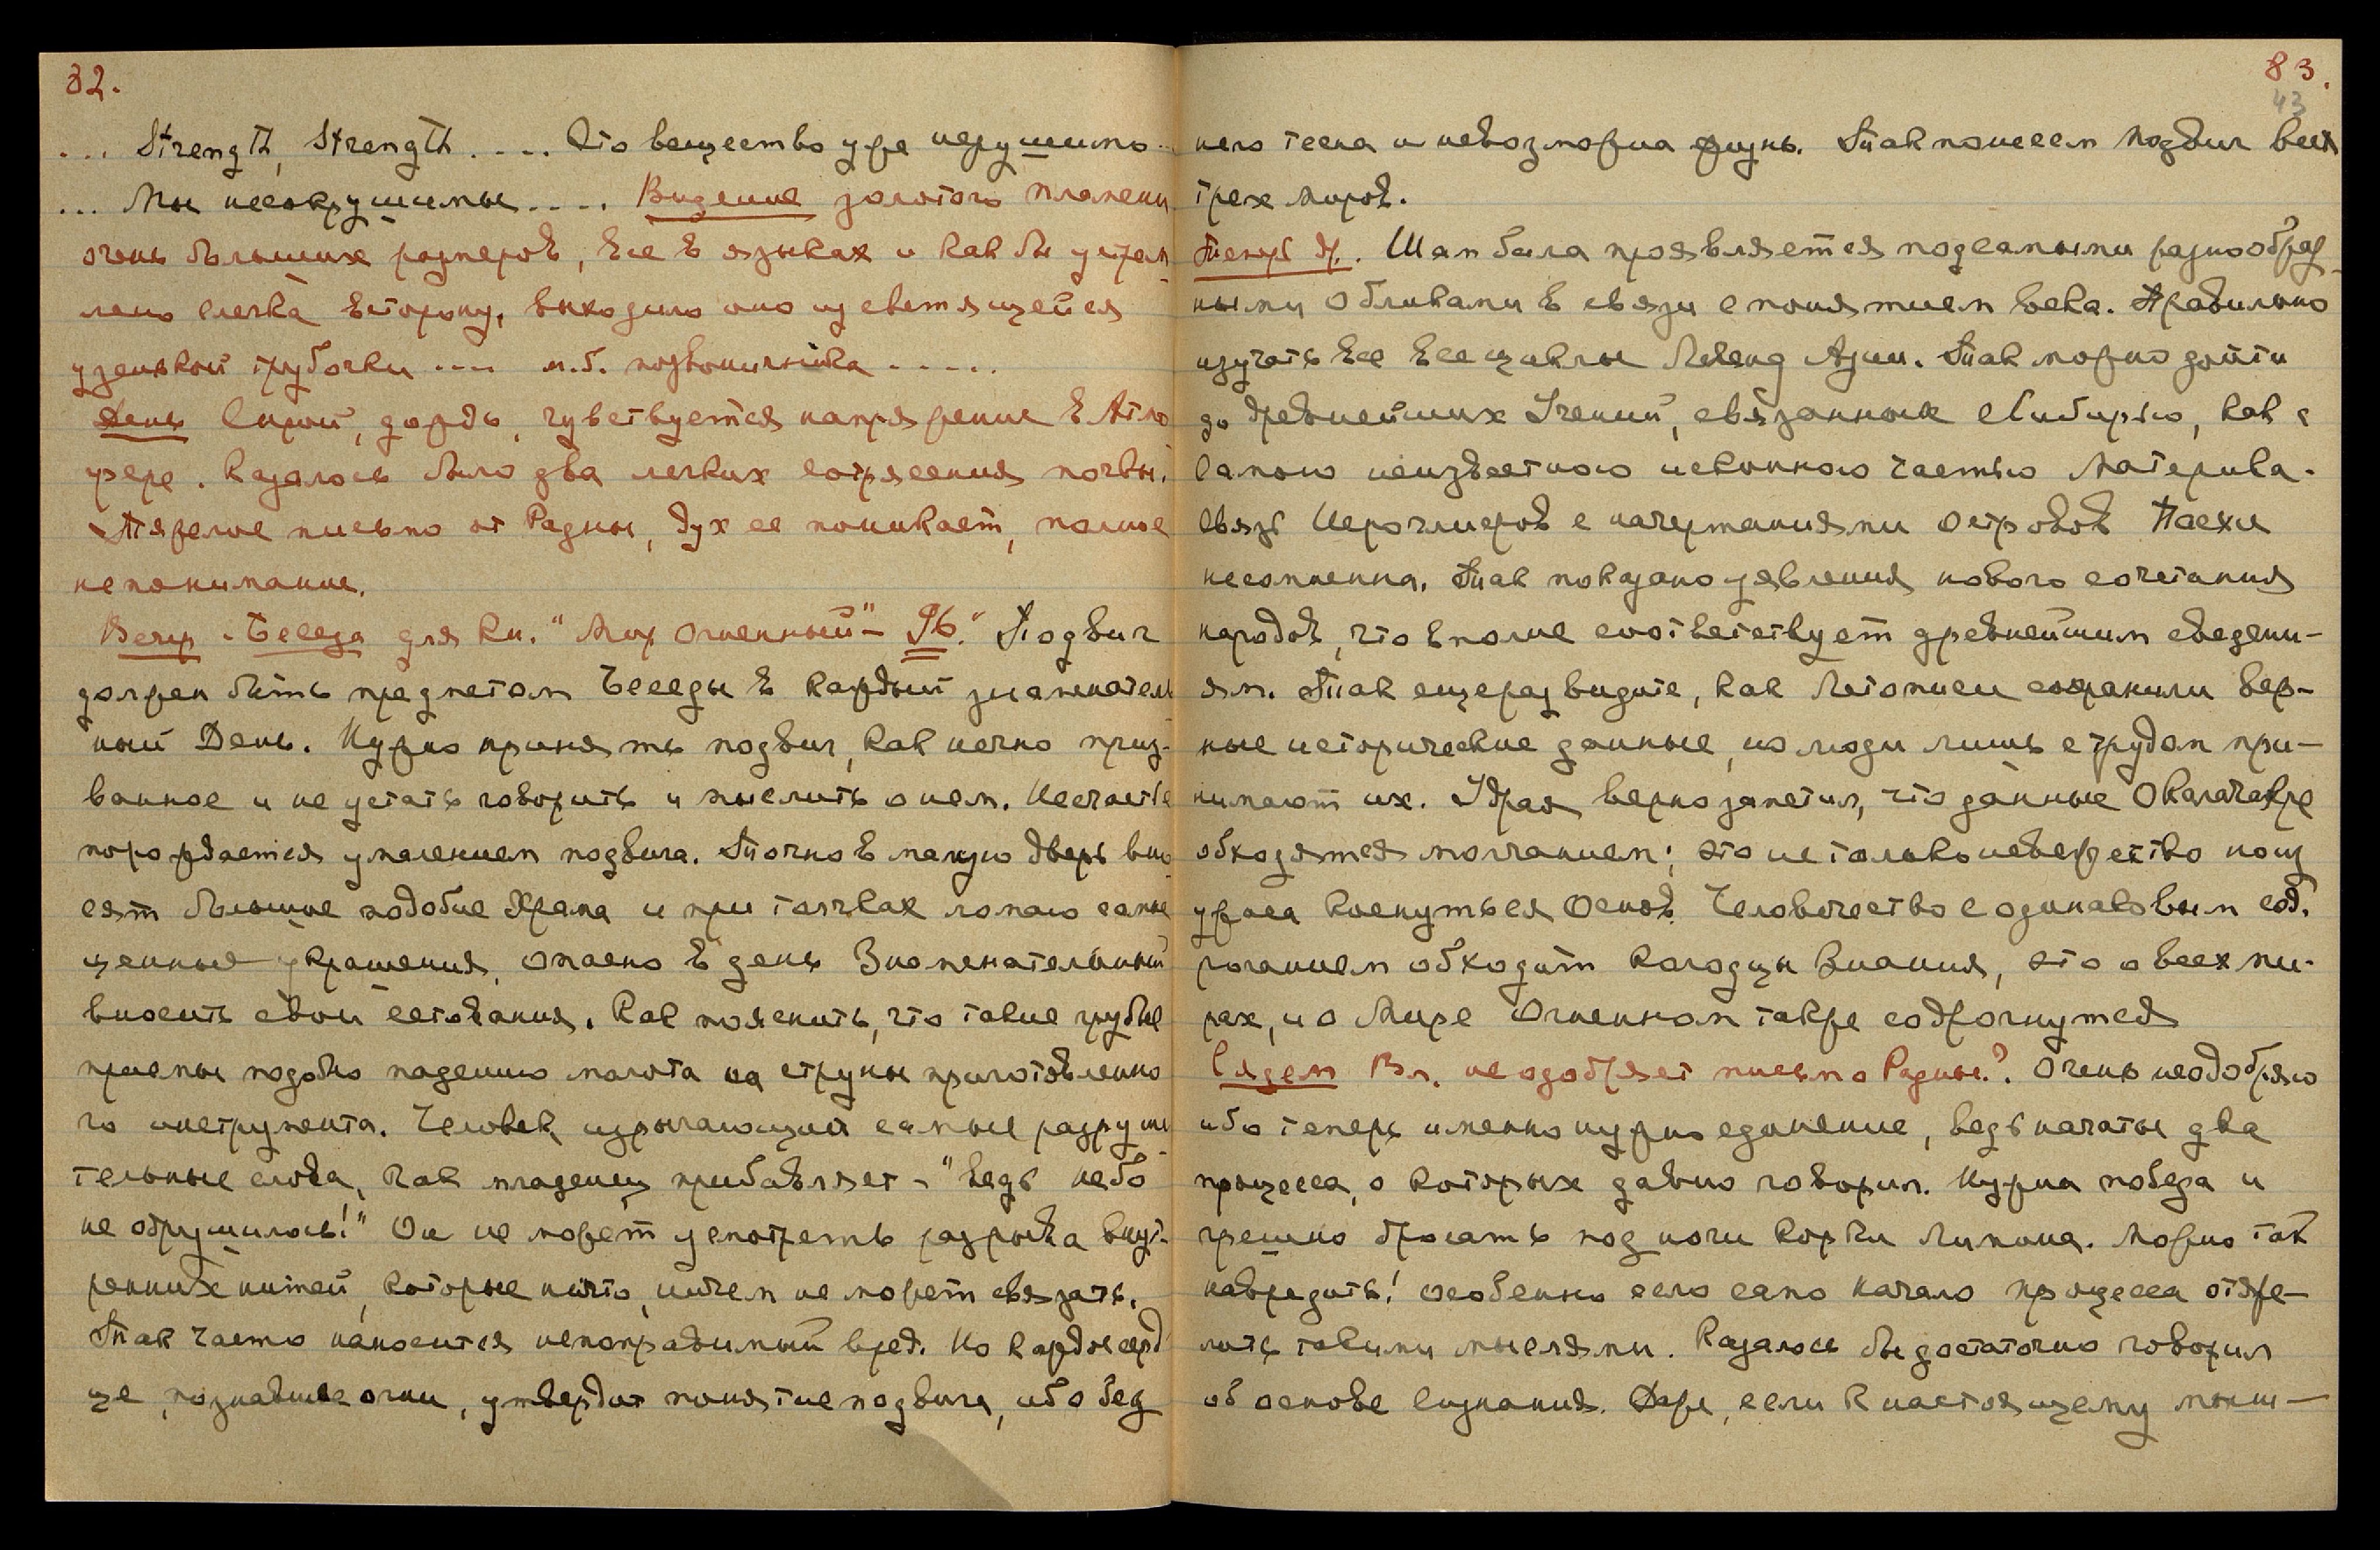 82.
... Strength, Strength .... Это вещество уже нерушимо ..
... Мы несокрушимы .... Видение золотого пламени
очень больших размеров, все в языках и как бы устрем-
лено слегка в сторону, выходило оно из светящейся
узенькой трубочки .... м.б. позвоночника .....
День Сырой, дождь, чувствуется напряжение в Атмо
сфере. Казалось было два легких сотрясения почвы.
Тяжелое письмо от Радны, дух ее поникает, полное
непонимание.
Вечер - Беседа для кн. "Мир Огненный" - 96." Подвиг
должен быть предметом Беседы в каждый знаменатель
ный День. Нужно принять подвиг, как нечто приз-
ванное и не устать говорить и мыслить о нем. Несчастье
порождается умалением подвига. Точно в малую дверь вно
сят большое подобие Храма и при толчках ломаю самые
ценные украшения, опасно в день Знаменательный
вносить свои сетования. Как пояснить, что такие грубые
приемы подобно падению молота на струны приготовленно
го инструмента. Человек, изрыгающий самые разруши-
тельные слова, как младенец прибавляет - "ведь небо
не обрушилось!" Он не может усмотреть разрыва внут-
ренних нитей, которые ничто, ничем не может связать.
Так часто наносится непоправимый вред. Но каждое серд
це, познавшее огни, утвердит понятие подвига, ибо без
83.
43
него тесна и невозможна жизнь. Так понесем подвиг всех
трех миров.
Теперь др. Шамбала проявляется под самыми разнообраз-
ными Обликами в связи с понятием века. Правильно
изучать все все циклы Легенд Азии. Так можно дойти
до древнейших Учений, связанных с Сибирью, как с
самою неизвестною исконною частью Материка.
Связь Иероглифов с начертаниями островов Пасхи
несомненна. Так показано уявления нового сочетания
народов, что вполне соответствует древнейшим сведени-
ям. Так еще раз видите, как Летописи сохранили вер-
ные исторические данные, но люди лишь с трудом при-
нимают их. Удрая верно заметил, что данные о Калачакре
обходятся молчанием; это не только невежество но из
ужаса коснуться Основ. Человечество с одинаковым сод-
роганием обходит Колодцы Знания, это о всех ми-
рах, и о Мире Огненном также содрогнутся
Сядем Вл. не одобряет письмо Радны?. Очень неодобряю
ибо теперь именно нужно единение, ведь начаты два
процесса, о которых давно говорил. Нужна победа и
грешно бросать под ноги корки Лимона. Можно так
навредить! особенно если само начало процесса отяже-
лить такими мыслями. Казалось бы достаточно говорил
об основе Сознания. Даже, если к настоящему мыш-